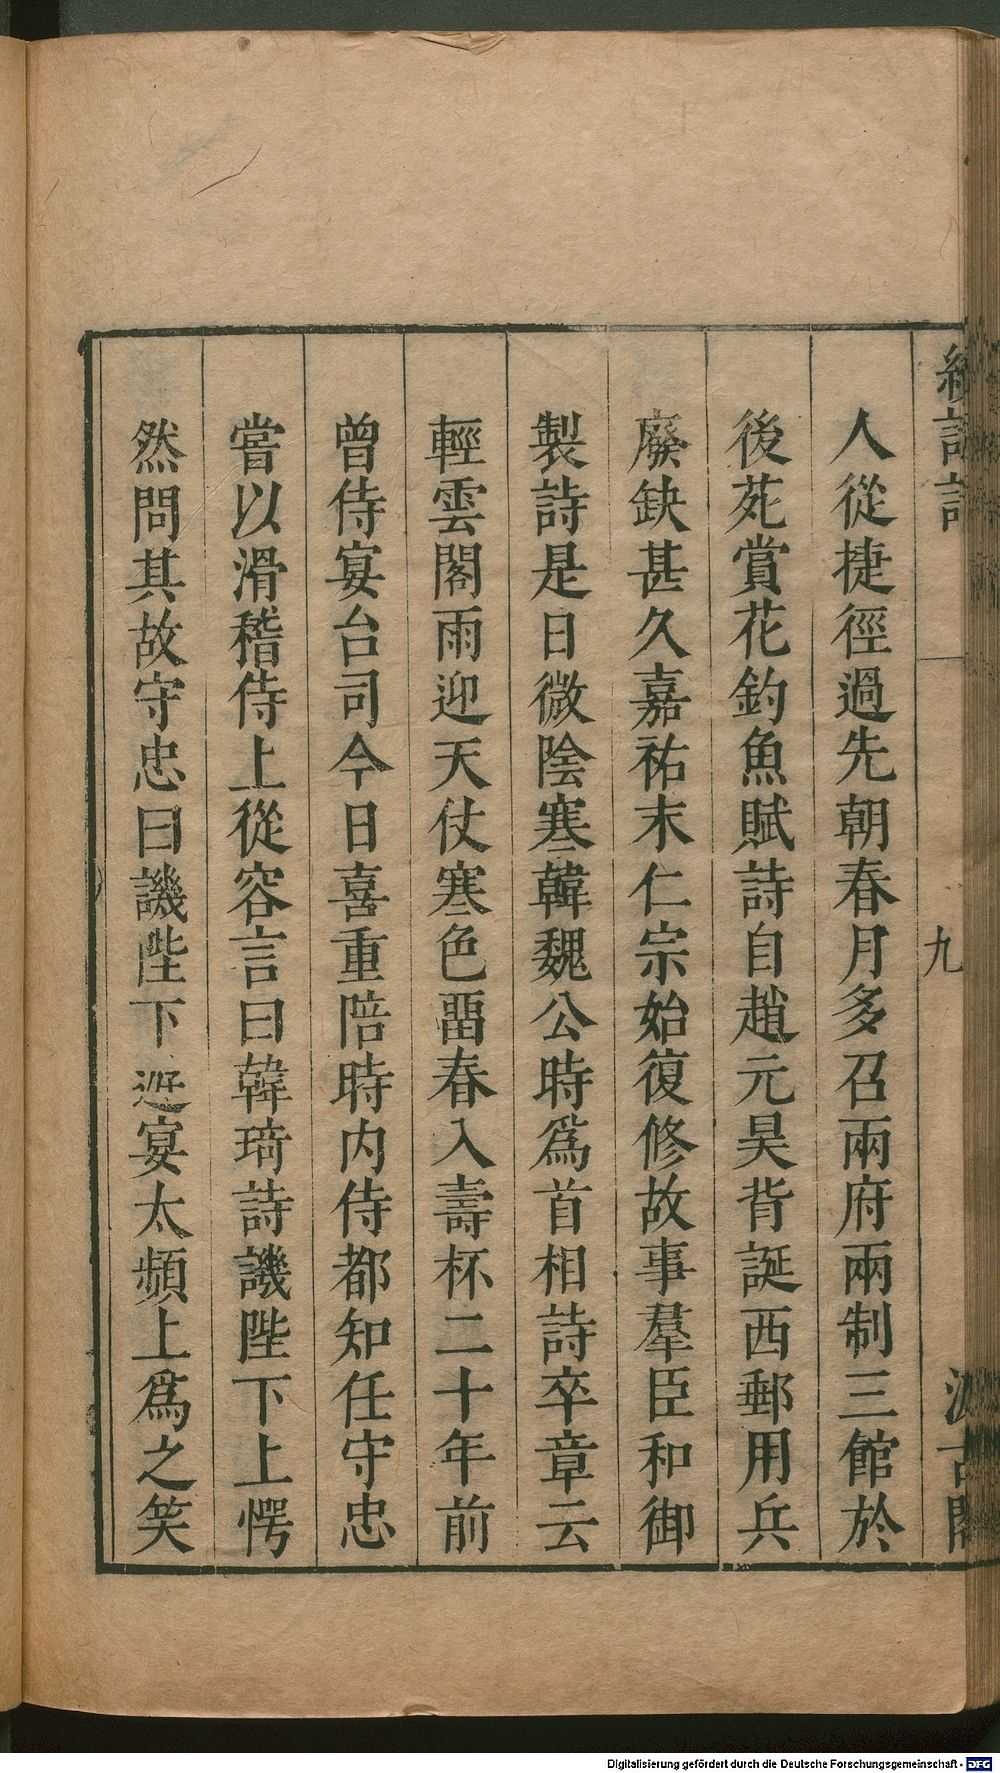 續詩話
九
汲古閣
人從捷徑過先朝春月多召兩府兩制三館於
後苑賞花釣魚賦詩自趙元昊背誕西郵用兵
廢缺甚久嘉祐末仁宗始復修故事羣臣和御
製詩是日微陰寒韓魏公時爲首相詩卒章云
輕雲閣雨迎天仗寒色畱春入壽杯二十年前
曾侍宴台司今日喜重陪時内侍都知任守忠
嘗以滑稽侍上從容言曰韓琦詩譏陛下上愕
然問其故守忠曰譏陛下遊宴太頻上爲之笑
Digitalisierung gefördert durch die Deutsche Forschungsgemeinschaft - DFG